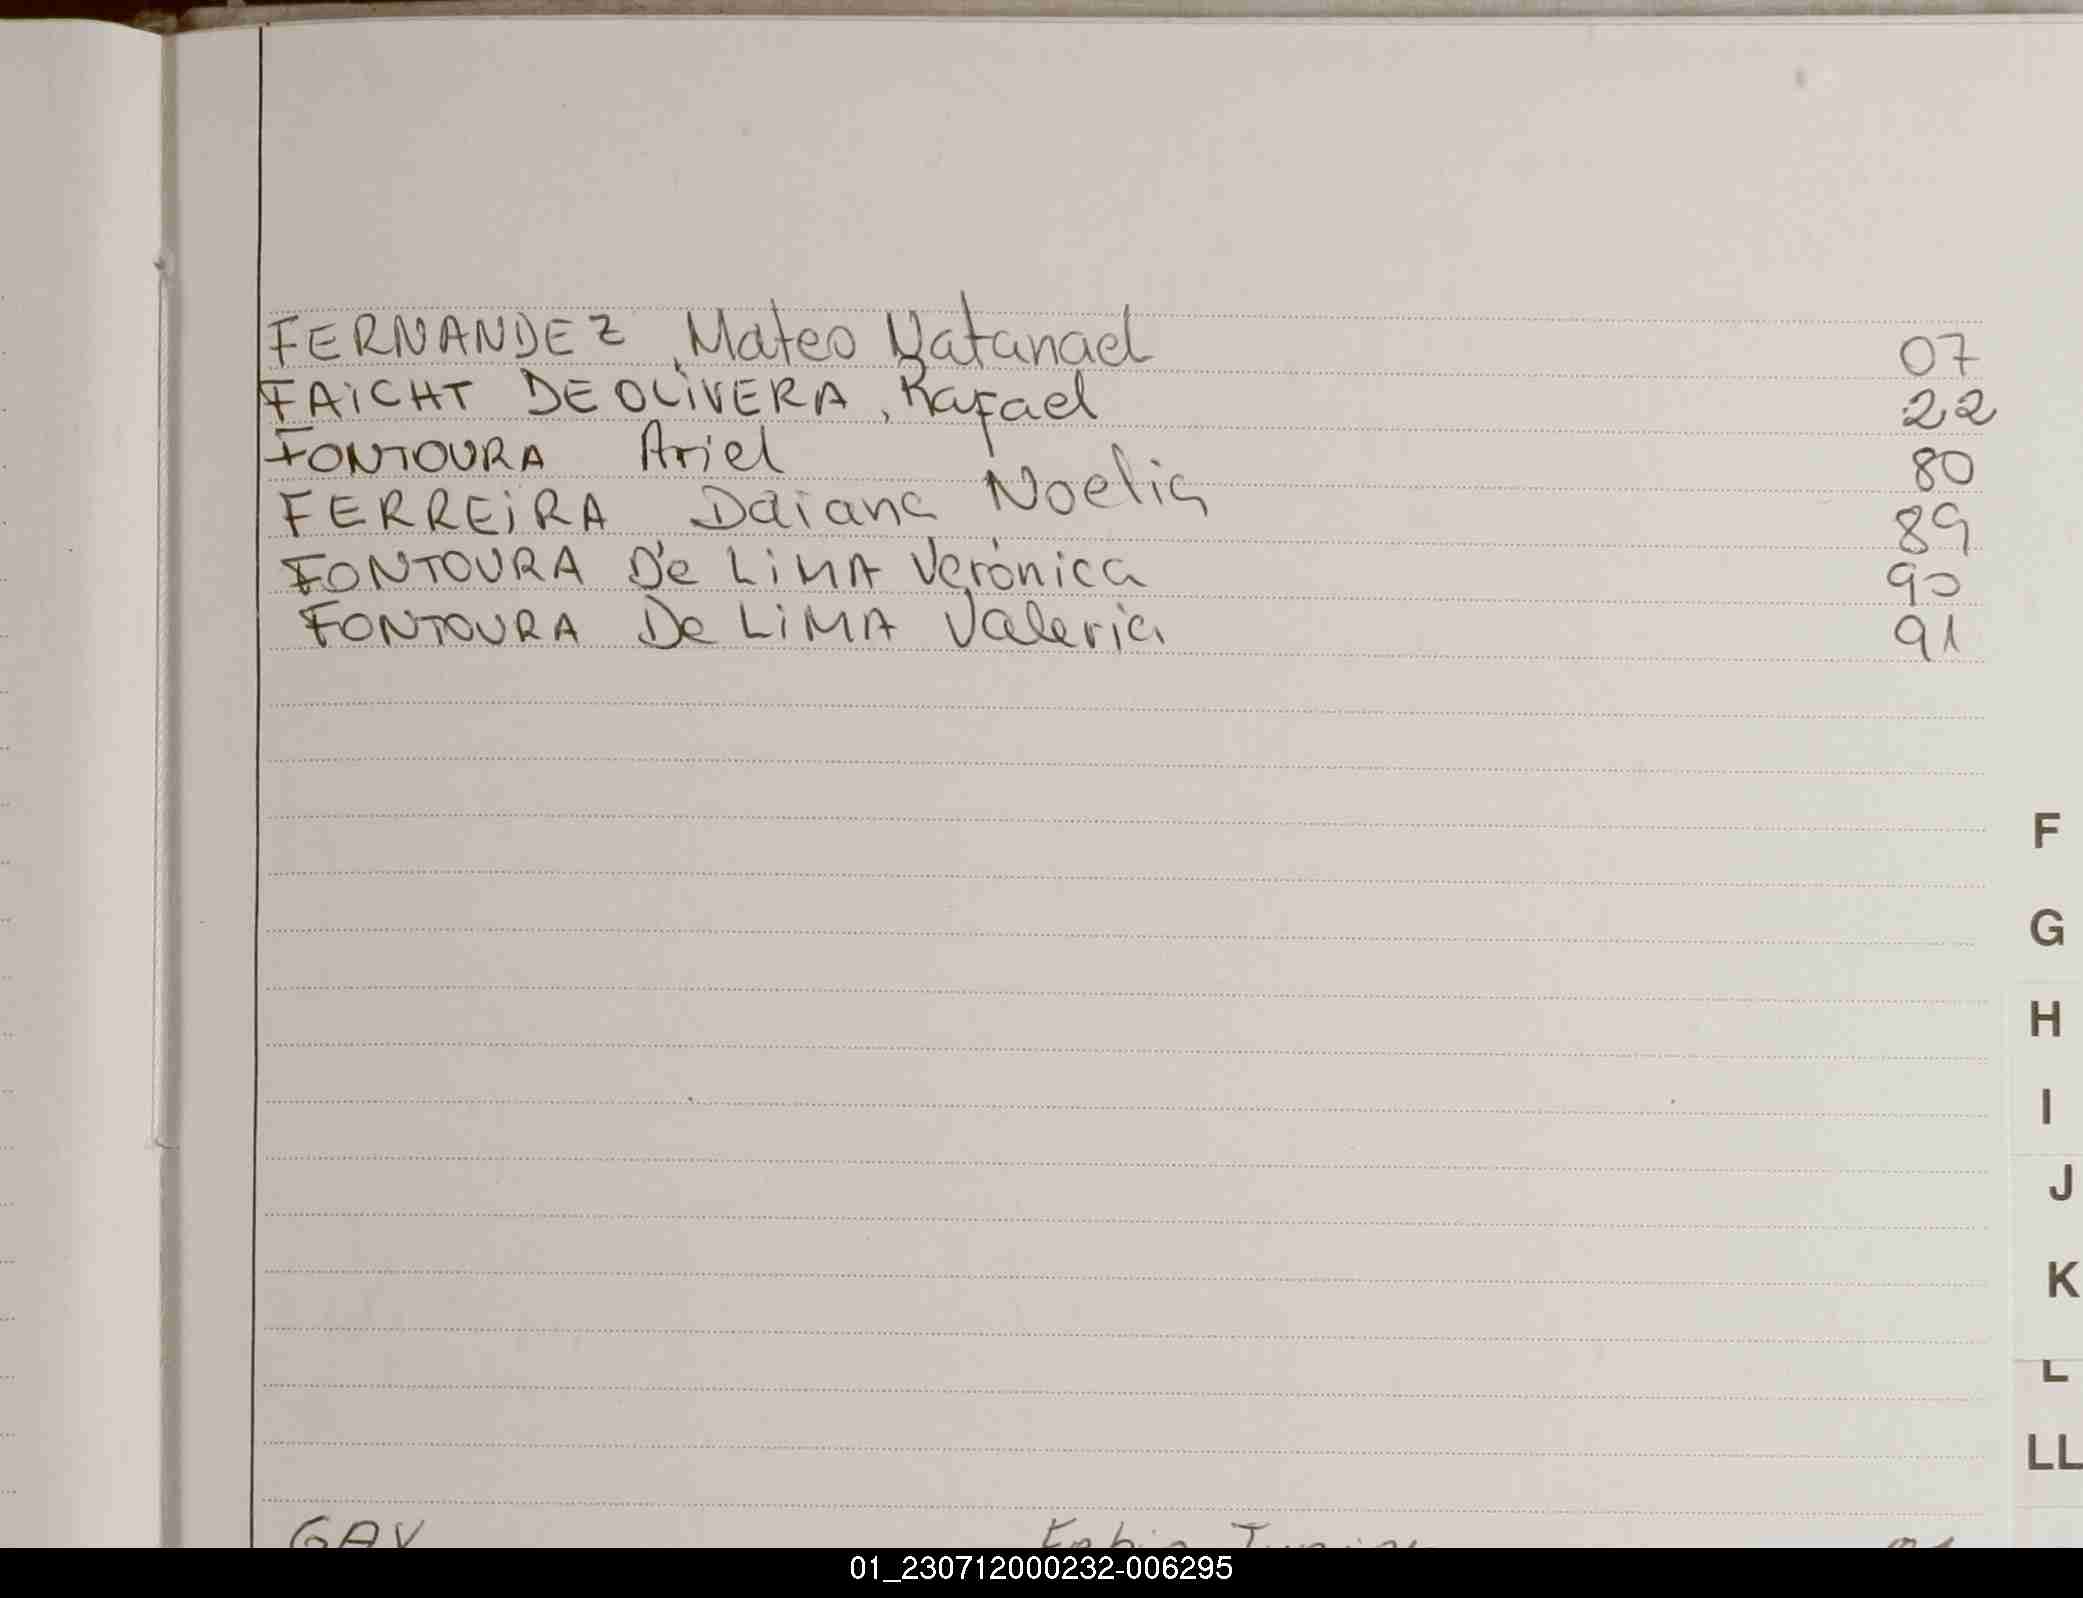 FERNANDEZ, Mateo Natanael 07
FAICHT DE OLIVERA, Rafael 22
FONTOURA Ariel 80
FERREIRA Daiana Noelia 89
FONTOURA De LiMA Verónica 90
FONTOURA De LiMA Valeria 91
F
G
H
I
J
K
L
LL
01_230712000232-006295